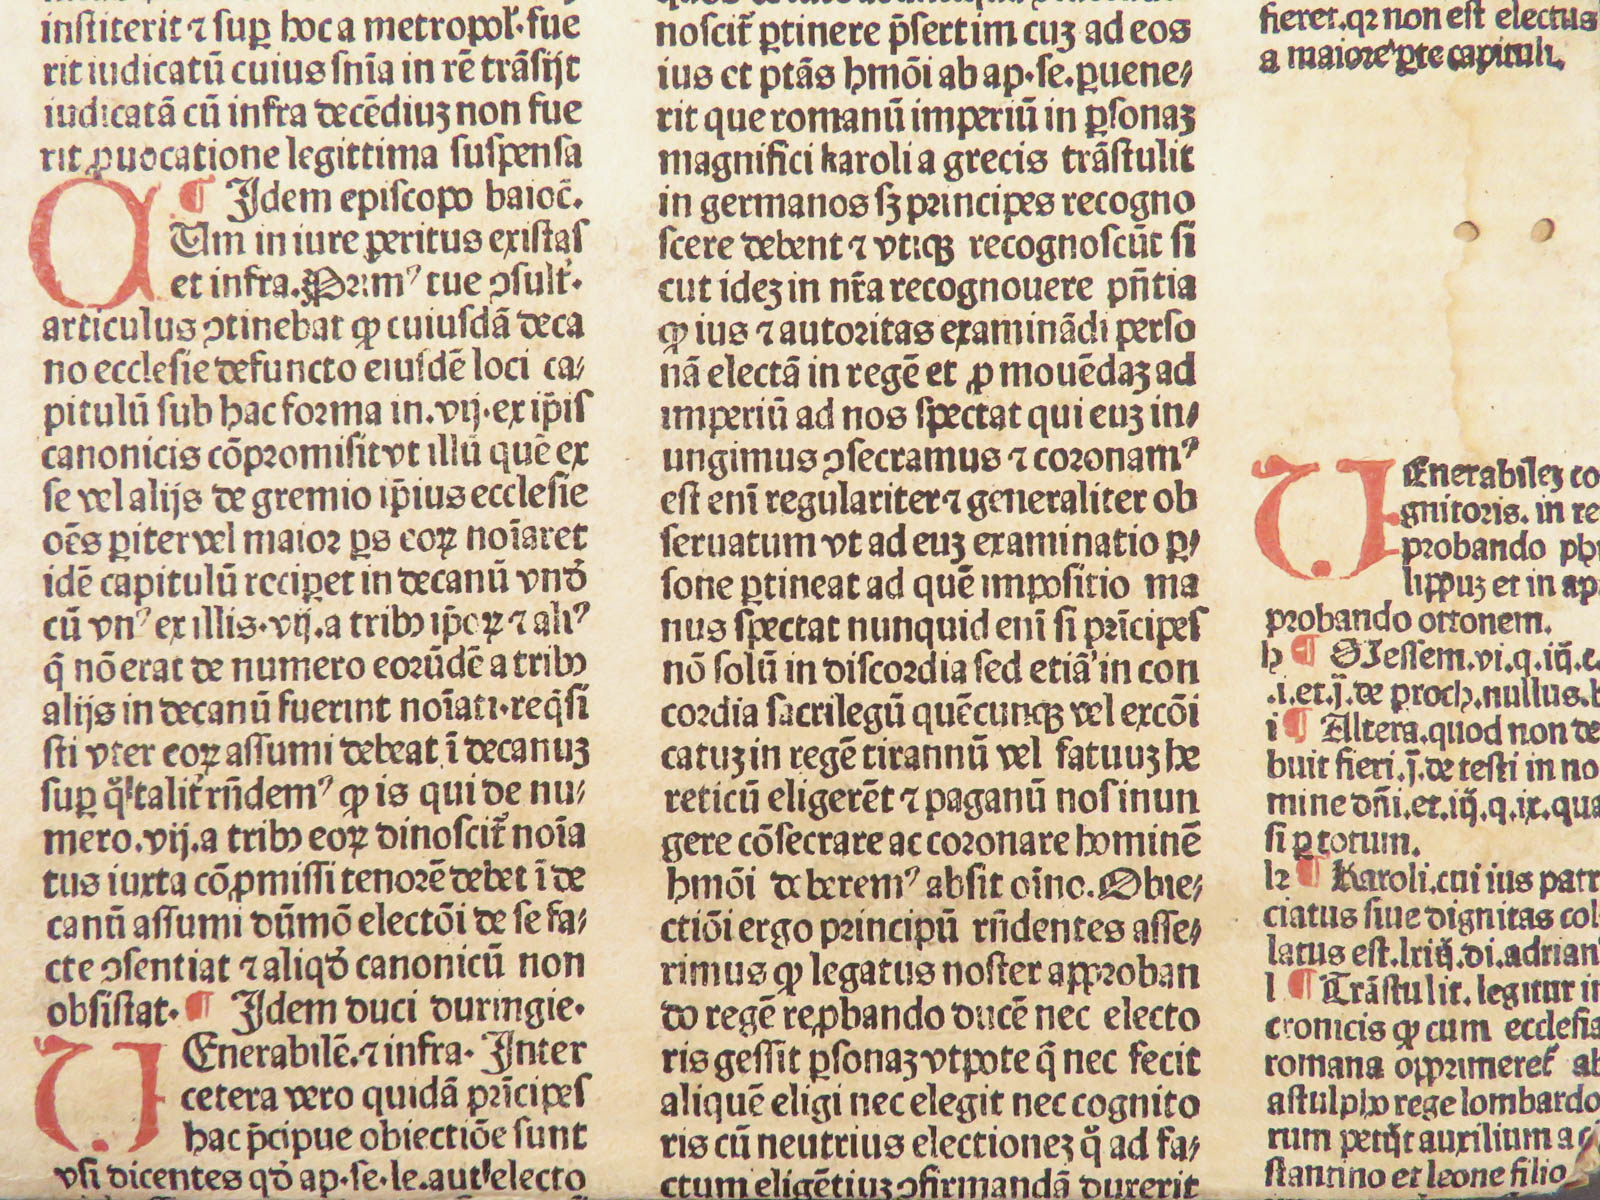 institerit ⁊ suꝑ hoc a metropol̉·fue
rit iudicatū cuius sn̄ia in rē trāsijt
iudicatā cū infra decēdiuꝫ non fue
rit ꝓuocatione legittima suspensa
¶ Jdem episcopo baioc̄.
QUm in iure peritus existas
et infra.Prim⁹ tue ꝯsult̉·
articulus ꝯtinebat ꝙ cuiusdā deca
no ecclesie defuncto eiusdē loci ca⸗
pitulū sub hac forma in.vij·ex ip̄is
canonicis cōpromisit vt illū quē ex
se vel alijs de gremio ip̄ius ecclesie
oēs ꝑiter vel maior ꝑs eoꝝ noīaret
idē capitulū reciꝑet in decanū vnd̄
cū vn⁹ ex illis·vij.a tribꝰ ip̄oꝝ ⁊ ali⁹
q̄ nō erat de numero eorūdē a tribꝰ
alijs in decanū fuerint noīati·reqͥsi
sti vter eoꝝ assumi debeat ī decanuꝫ
suꝑ qͦ talit̉ rn̄dem⁹ ꝙ is qui de nu⸗
mero.vij.a tribꝰ eoꝝ dinoscit̉ noīa
tus iuxta cōꝓmissi tenorē debet ī de
canū assumi dūmō electōi de se fa⸗
cte ꝯsentiat ⁊ aliqd̄ canonicū non
obsistat·¶ Jdem duci duringie·
VEnerabilē.⁊ infra· Jnter
cetera vero quidā prīcipes
hac p̄cipue obiectiōe sunt
vsi dicentes qd̄ ap·se·le.aut̉ electo
noscit̉ ꝑtinere p̄sertim cuꝫ ad eos
ius et ptās hmōi ab ap·se.ꝑuene⸗
rit que romanū imperiū in ꝑsonaꝫ
magnifici karoli a grecis trāstulit
in germanos sꝫ principes recogno
scere debent ⁊ vtiqꝫ recognoscūt si
cut ideꝫ in nr̄a recognouere pn̄tia
ꝙ ius ⁊ autoritas examinādi perso
nā electā in regē et ꝓmouēdaꝫ ad
imperiū ad nos spectat qui euꝫ in⸗
ungimus ꝯsecramus ⁊ coronam⁹
est enī regulariter ⁊ generaliter ob
seruatum vt ad euꝫ examinatio ꝑ⸗
sone ꝑtineat ad quē impositio ma
nus spectat nunquid enī si prīcipes
nō solū in discordia sed etiā in con
cordia sacrilegū quēcunqꝫ vel excōi
catuꝫ in regē tirannū vel fatuuꝫ he
reticū eligerēt ⁊ paganū nos inun
gere cōsecrare ac coronare hominē
hmōi deberem⁹ absit oīno.Obie⸗
ctiōi ergo principū rn̄dentes asse⸗
rimus ꝙ legatus noster approban
do regē reꝓbando ducē nec electo
ris gessit ꝑsonaꝫ vtpote q̄ nec fecit
aliquē eligi nec elegit nec cognito
ris cū neutrius electioneꝫ qͦ ad fa⸗
ctum eligētiuꝫ ꝯfirmandā duxerit
fieret.qꝛ non est electus
a maiore ꝑte capituli.
VEnerabileꝫ co
gnitoris. in re
probando phi
lippuꝫ et in ap
probando ottonem.
h ¶ Gessem.vi.q.iij.c.
.i.et.ij.de proch.nullus.
i ¶ Altera.quod non de
buit fieri.j.de testi in no
mine dn̄i.et.iij.q.ix.qua
si ꝑ totum.
k ¶ Karoli.cui ius patr
ciatus siue dignitas col
latus est.lxiij.di.adrian
l ¶ Trāstulit. legitur in
cronicis ꝙ cum ecclesia
romana opprimeret̉ ab
astulpho rege lombardo
rum petijt auxilium a
stantino et leone filio